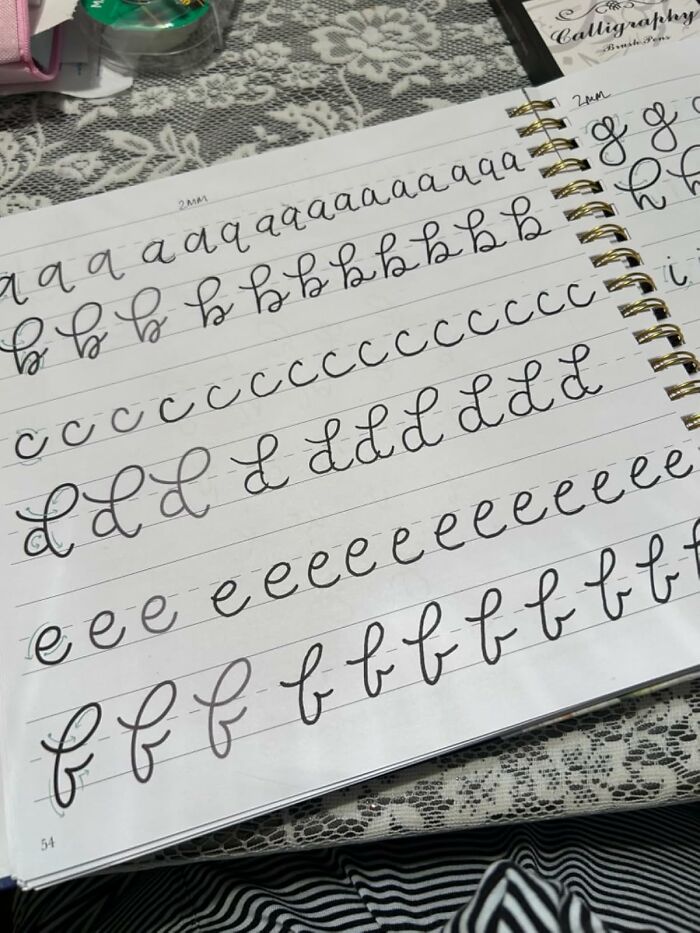 Calligraphy
Brush Pens
2MM
a a a a a a a a a a a a a a a a
b b b b b b b b b b b
c c c c c c c c c c c c c c c
d d d d d d d d d d
e e e e e e e e e e e e e e e
f f f f f f f f f f
54
2MM
g g
h h
i